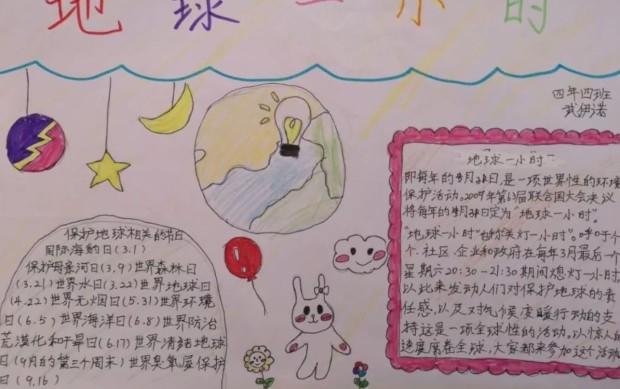 地球一小时
四年四班
武伊诺
保护地球相关的节日
国际海豹日(3.1)
保护母亲河日(3.9)世界森林日
(3.21)世界水日(3.22)世界地球日
(4.22)世界无烟日(5.31)世界环境
日(6.5)世界海洋日(6.8)世界防治
荒漠化和干旱日(6.17)世界清洁地球
日(9月的第三个周末)世界臭氧层保护
日(9.16)
"地球一小时"
即每年的3月28日,是一项世界性的环境
保护活动。2009年第63届联合国大会决议
将每年的4月22日定为"地球一小时"。
"地球一小时"也称关灯一小时"。呼吁于个
个、社区、企业和政府在每年3月最后一个
星期六20:30-21:30期间熄灯一小时
以此来发动人们对保护地球的责
任感,以及对气候变暖行动的支
持这是一项全球性的活动,以惊人的
速度席卷全球,大家都来参加这个活动